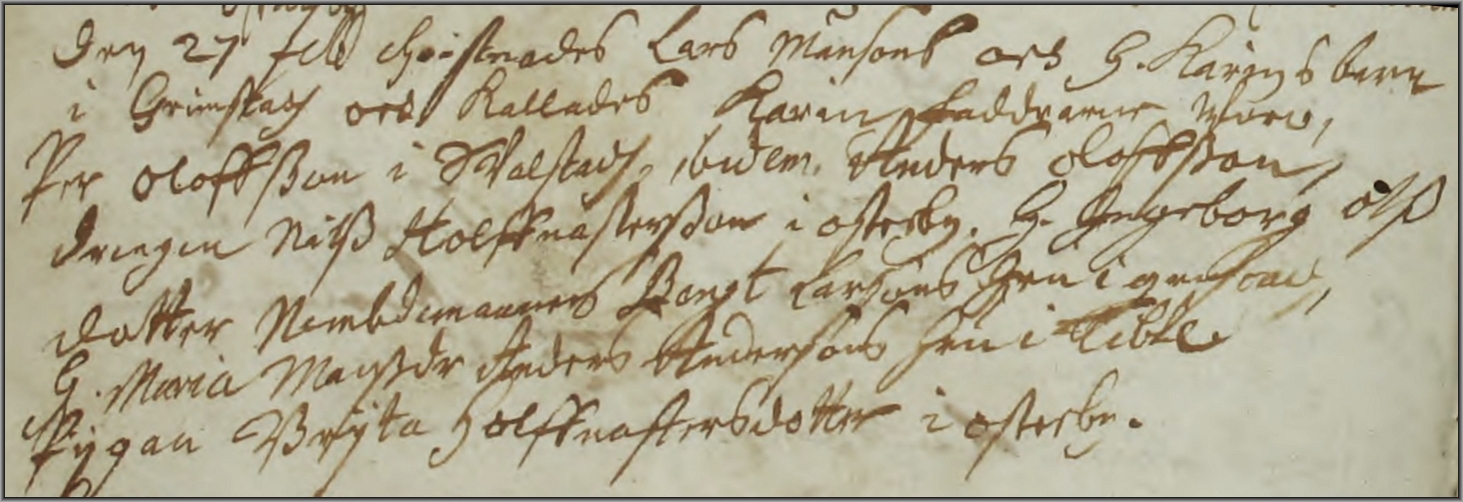 Den 27 Feb Christnades Lars Månsons och H. Karins barn
i Grimstadh och Kallades Karin, faddrarne woro,
Per Oloffßon i Walstadh, ibidem. Anders Oloffßon,
drängen Nilß Holffnastersson i österby. H. Ingeborg olß
dotter Nembdemannens Bengt Larsons hru i
H. Maria Matzdr Anders Andersons hru i Tible
Pygan Bryta Holffnastersdotter i österby.